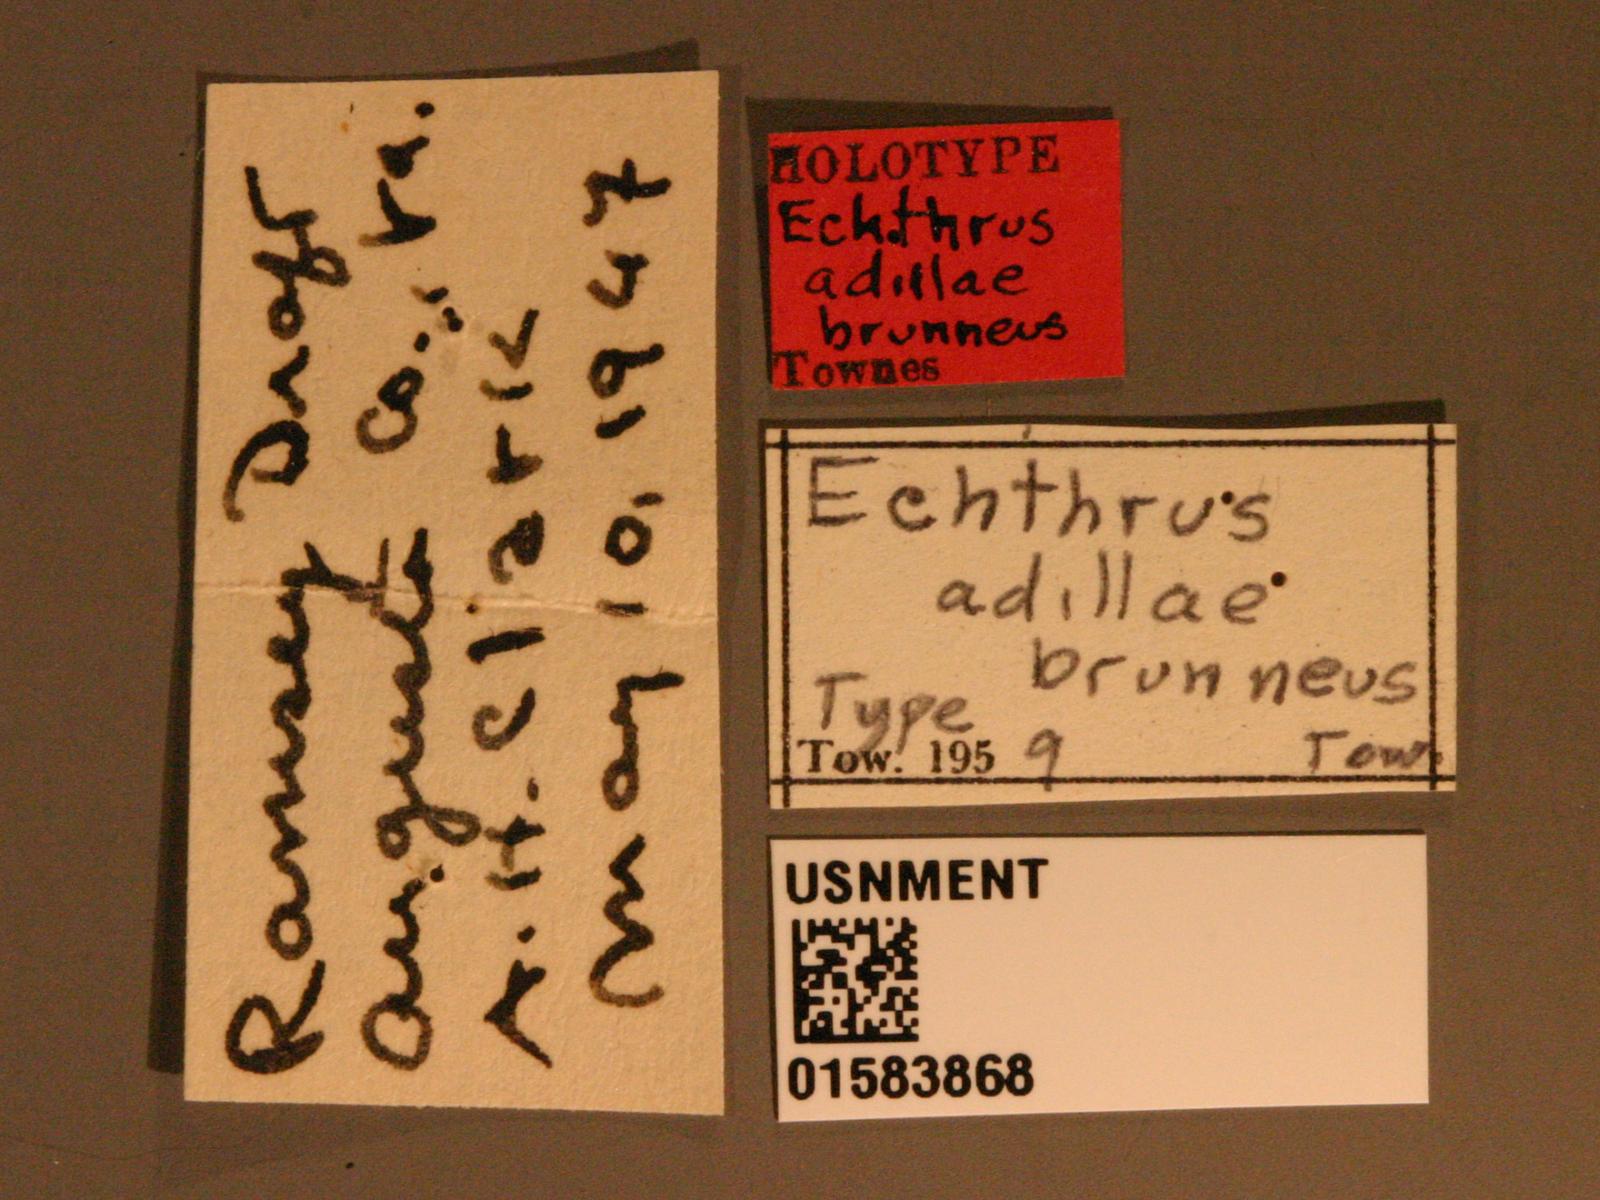 Ramsey Draft
Augusta Co., Va.
A. H. Clark
May 10, 1947
HOLOTYPE
Echthrus
adillae
brunneus
Townes
Echthrus
adillae
brunneus
Type
Tow. 1959 Tow.
USNMENT
01583868